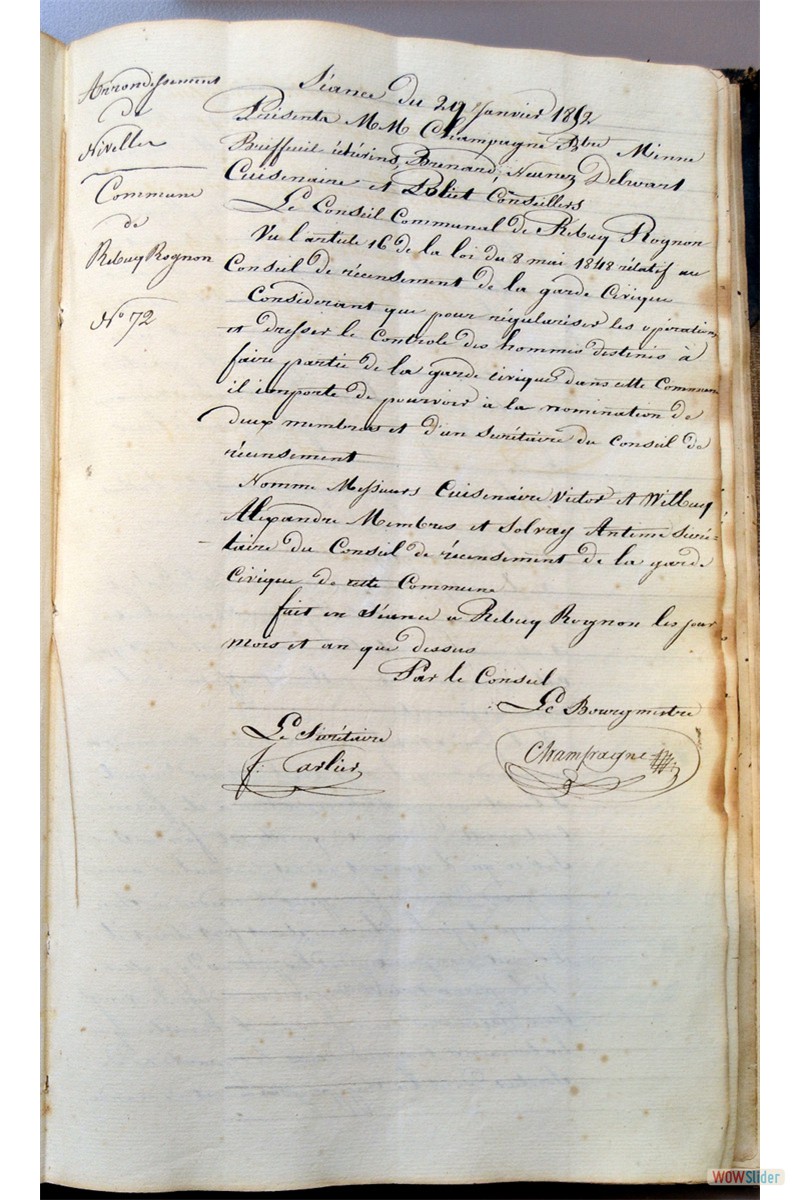 Arrondissement
de
Nivelles
Commune
de
Rebecq Rognon
N° 72
Séance du 29 Janvier 1852
Présents MM Champagne Btre Minne
échévins, Neunez Delwart
Cuisenaire et Poliet Conseillers
Le Conseil Communal de Rebecq Rognon
Vu l'article 16 de la loi du 8 mai 1848 rélatif au
Conseil de récensement de la garde Civique
Considerant que pour régulariser les opérations
et dresser le Controle des hommes destinés à
faire partie de la garde civique dans cette Commune
il importe de pourvoir à la nomination de
deux membres et d'un Secrétaire du Conseil de
récensement
Nomme Messieurs Cuisenaire Victor et Wilbecq
Alexandre Membres et Solvay Anteme Secré-
taire du Conseil de récensement de la garde
Civique de cette Commune
fait en Séance a Rebecq Rognon les jour
mois et an que dessus
Par le Conseil
Le Bourgmestre
Le Secrétaire
Champagne
f. Carlier
WOWSlider